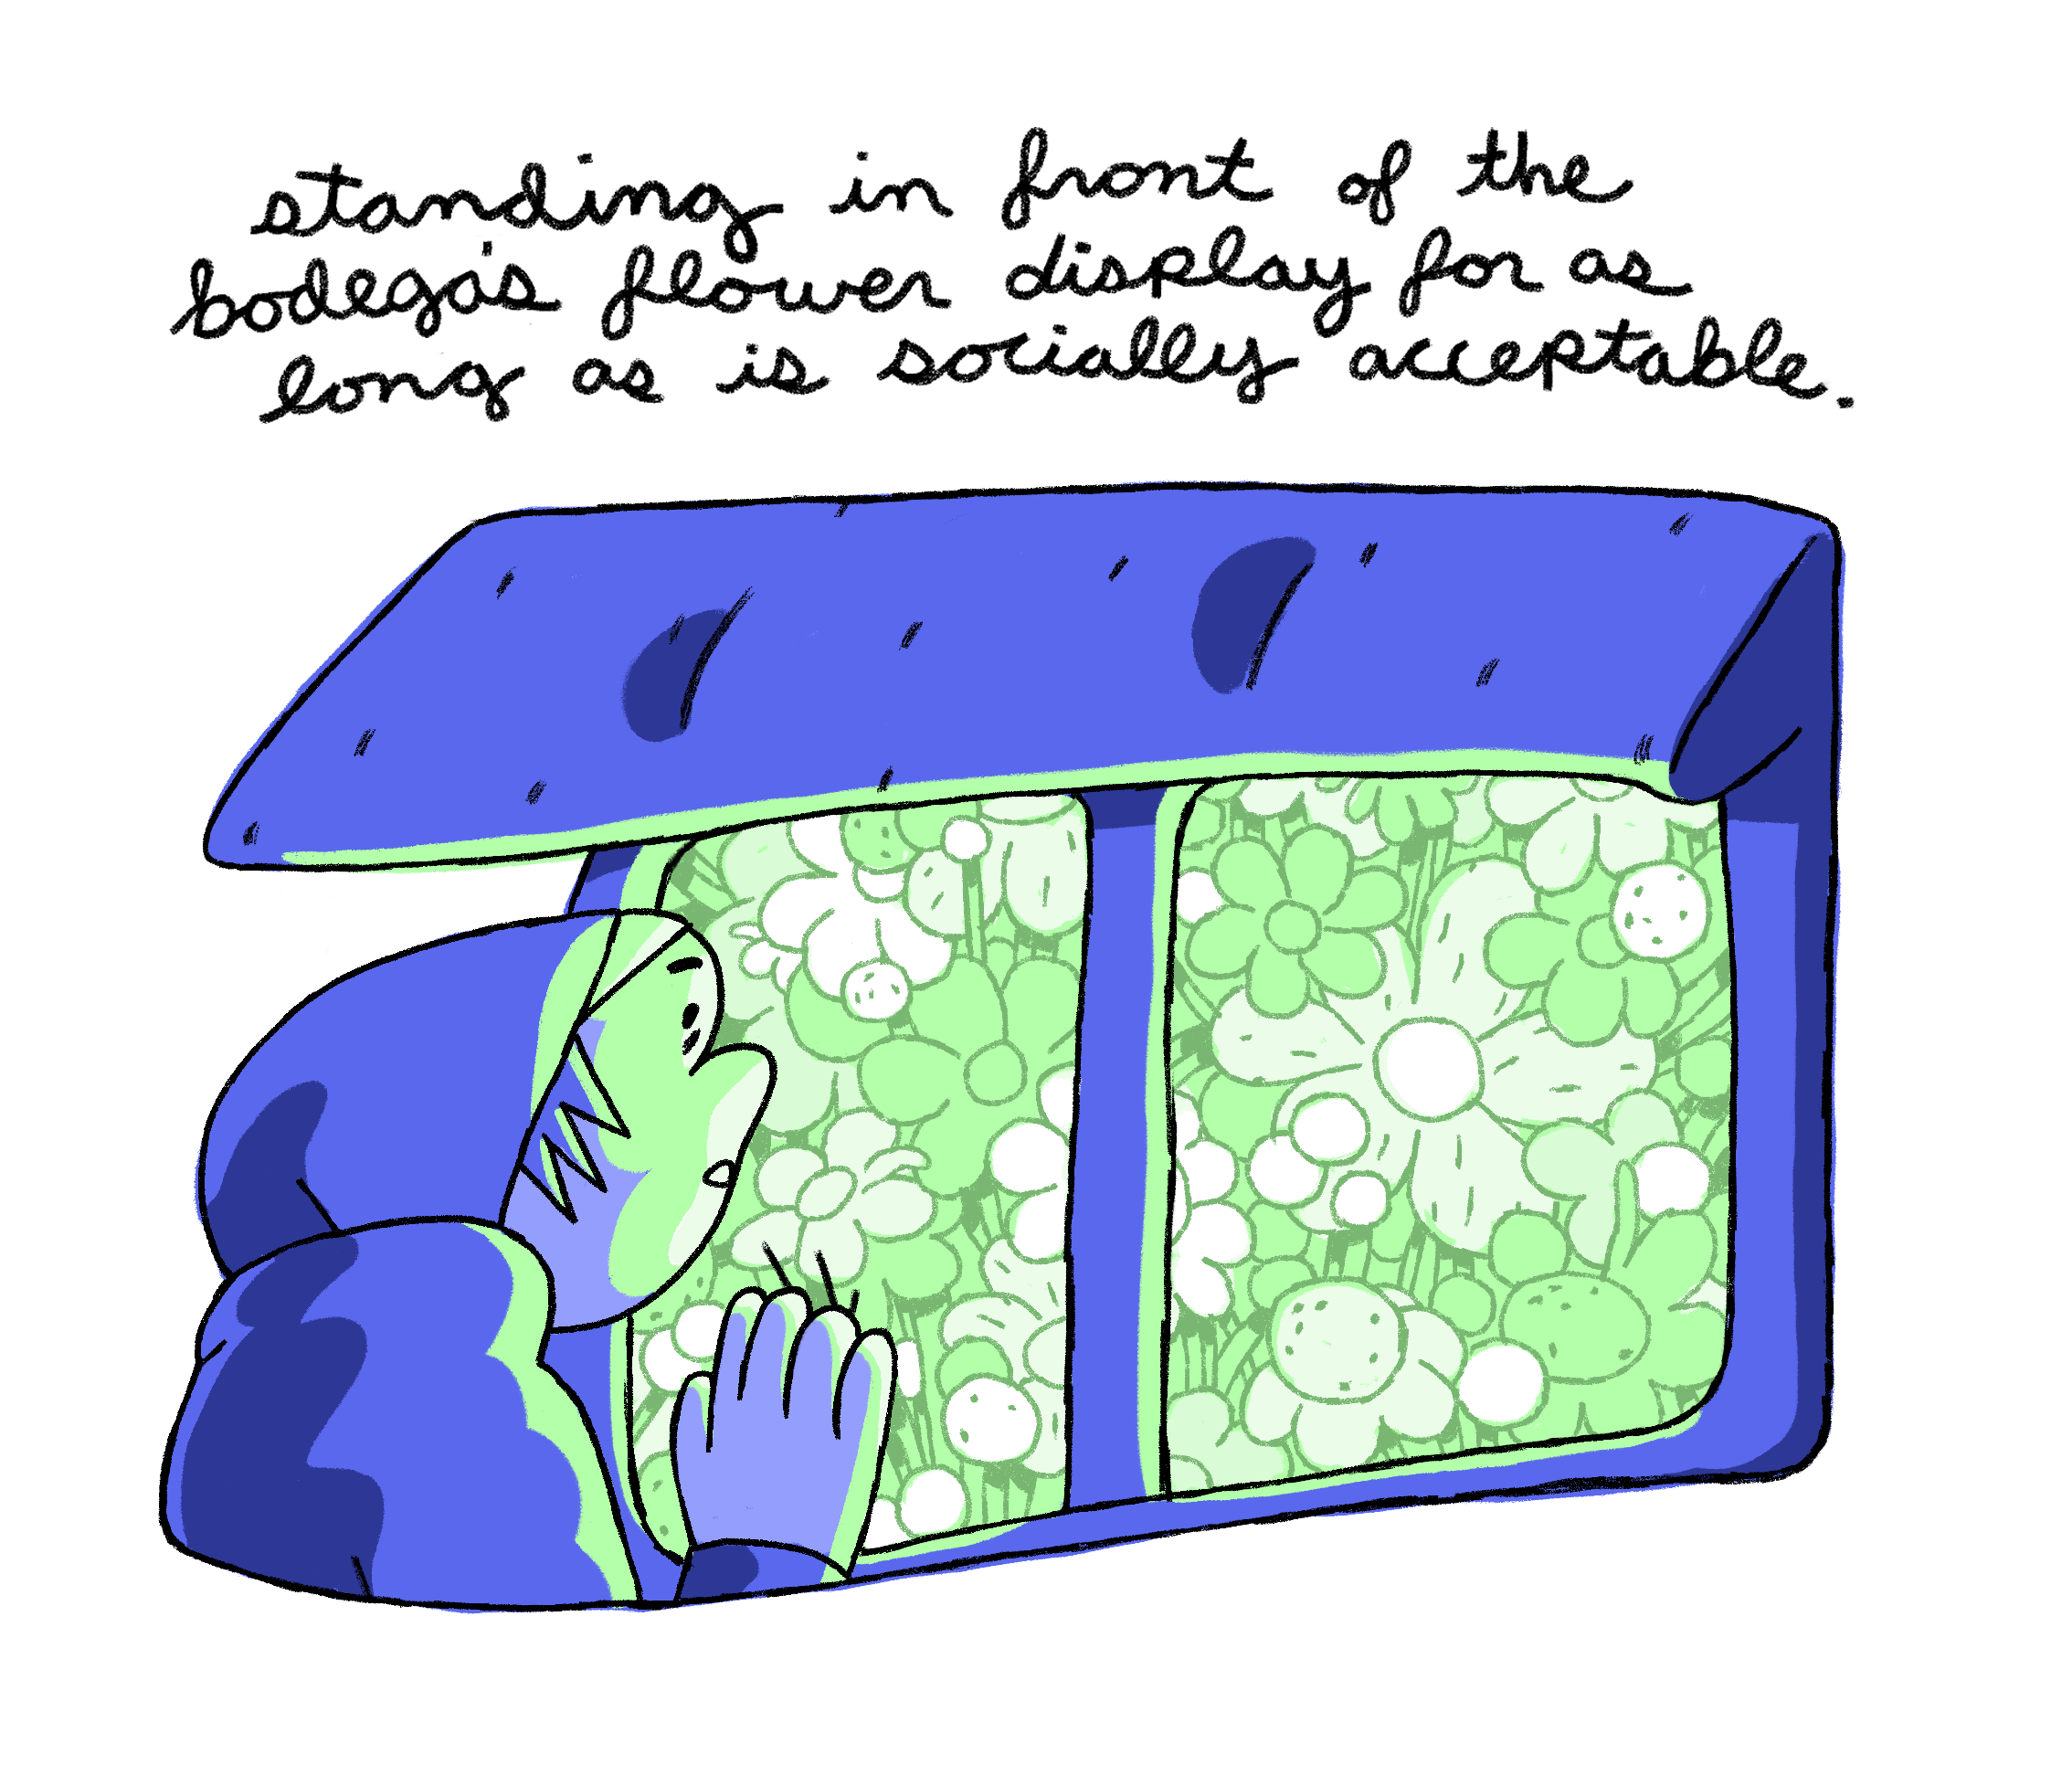 standing in front of the
bodega's flower display for as
long as is socially acceptable.